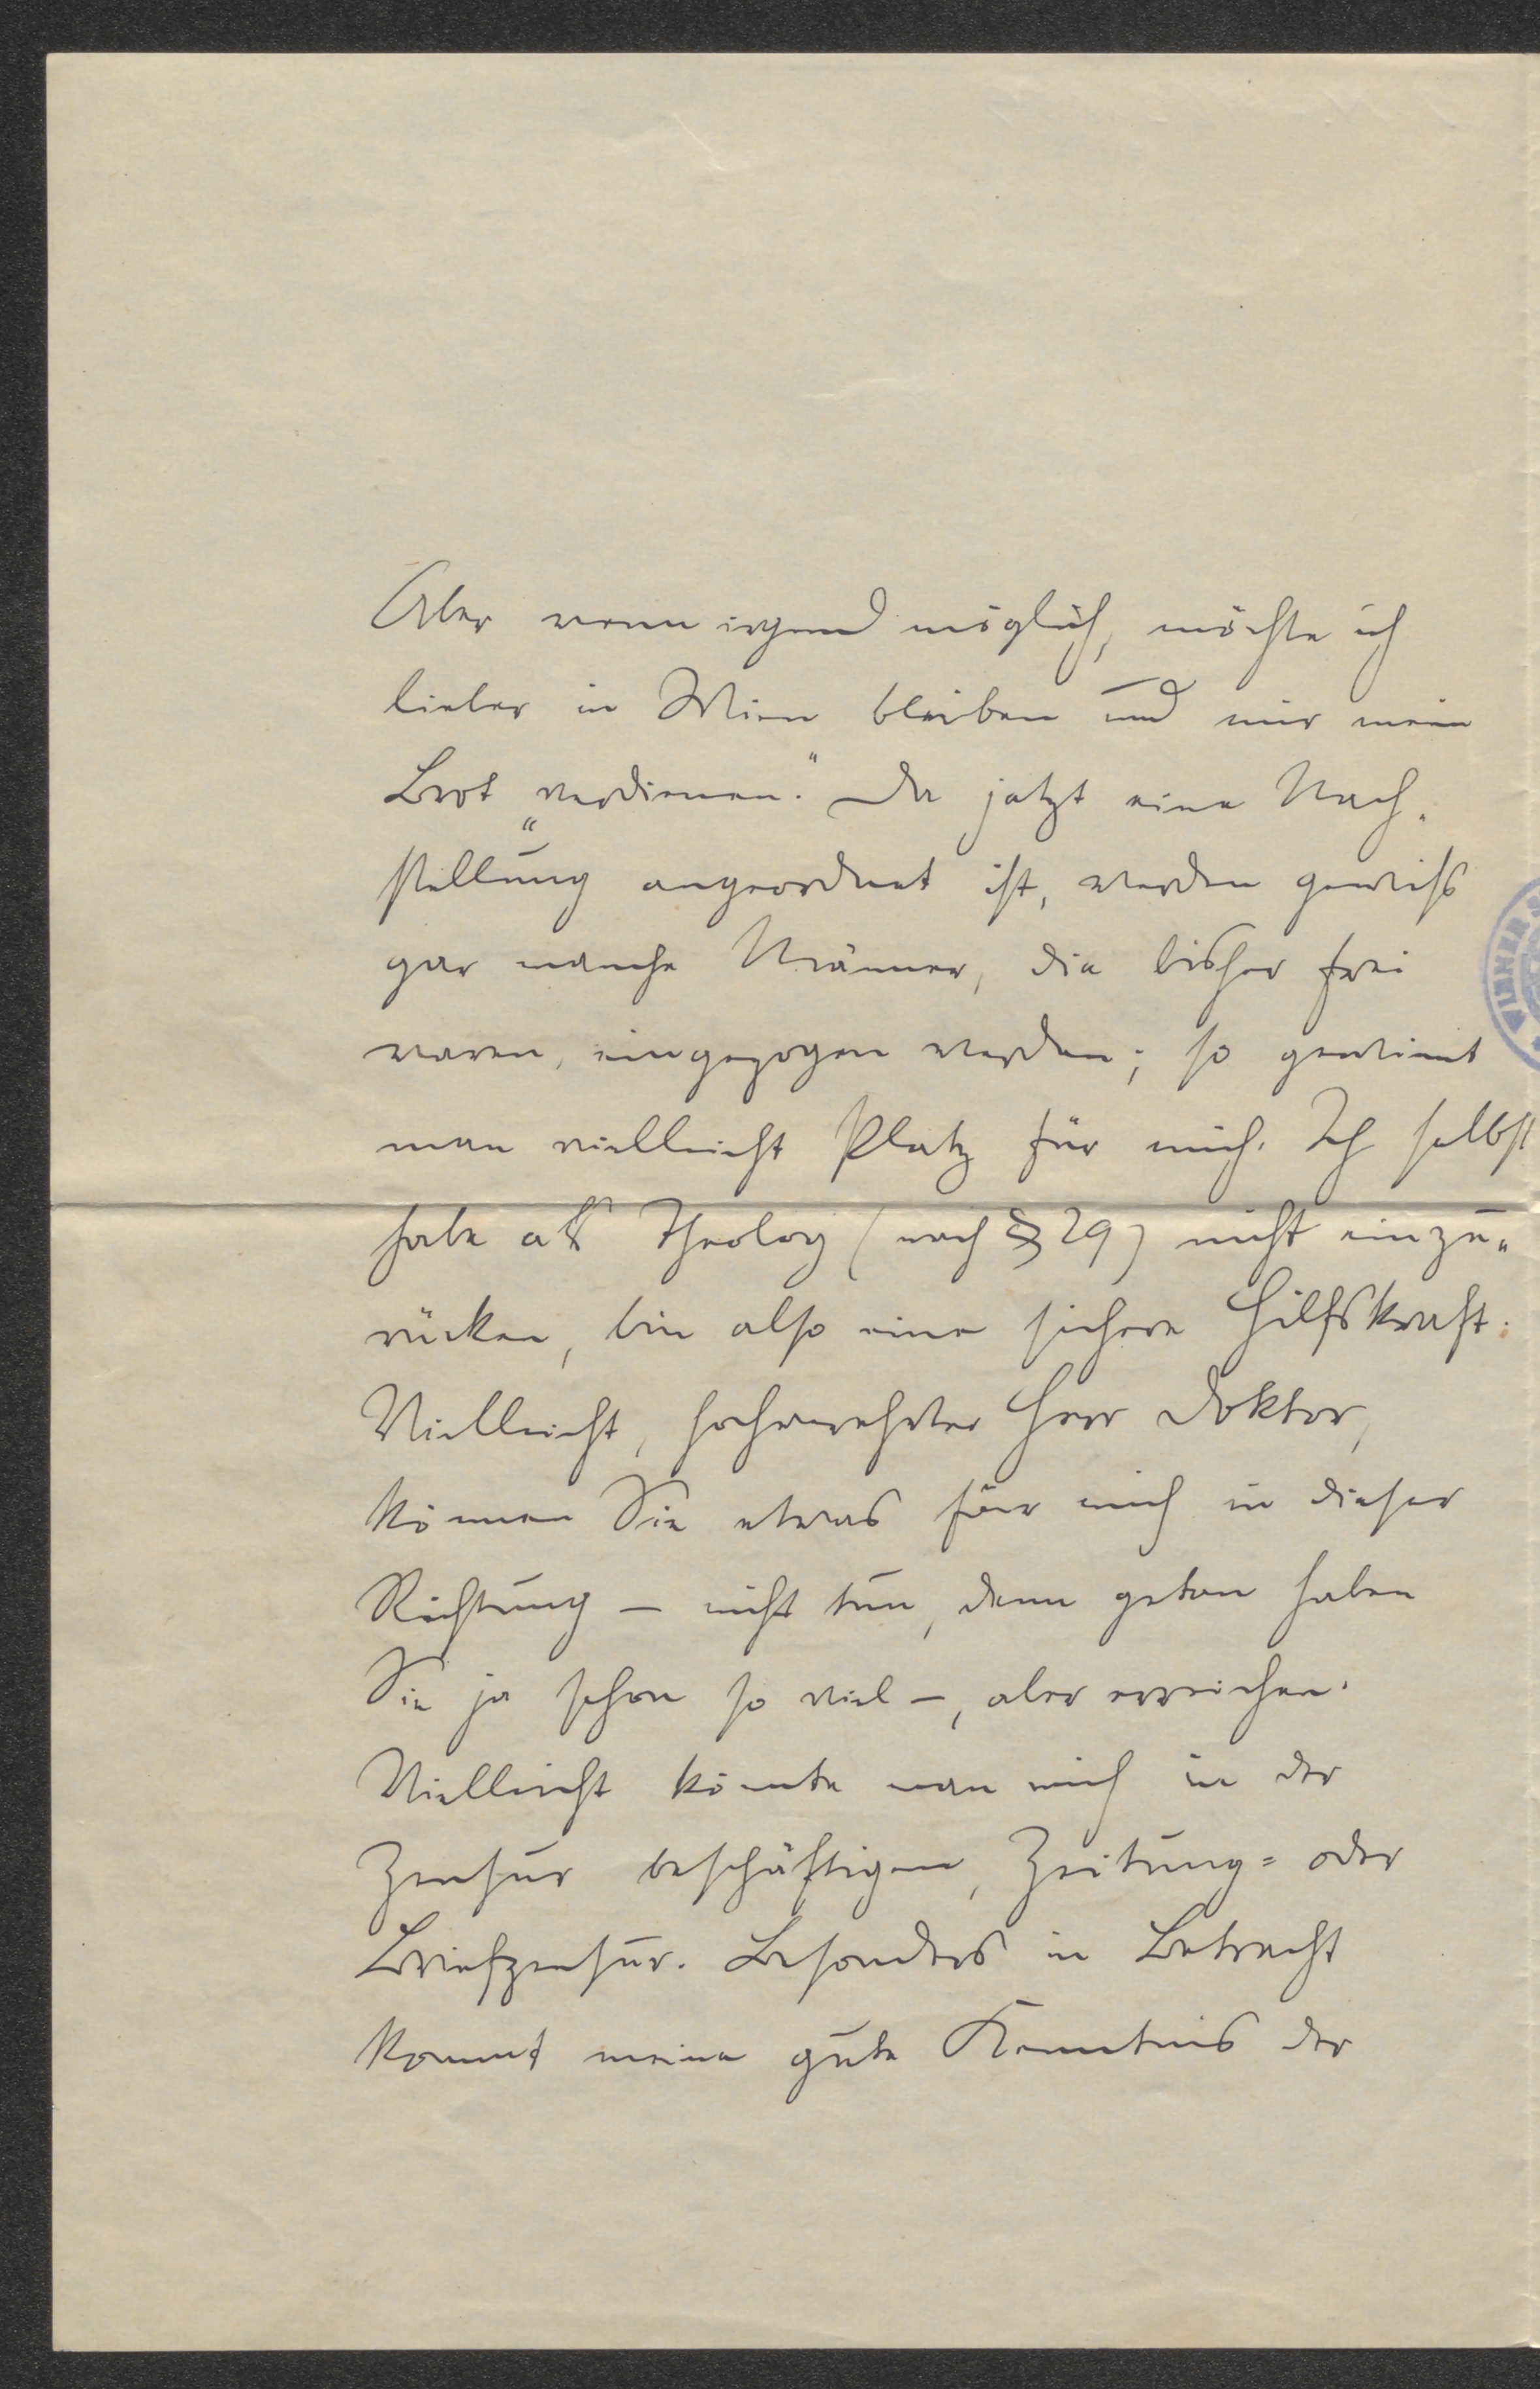 Aber wenn irgend möglich, möchte ich
lieber in Wien bleiben und mir mein
Brot „verdienen.“ Da jetzt eine Nach-
stellung angeordnet ist, werden gewiß
gar manche Männer, die bisher frei
waren, eingezogen werden; so gewinnt
man vielleicht Platz für mich. Ich selbst
habe als Theolog (nach § 29) nicht einzu-
rücken, bin also eine sichere Hilfskraft.
Vielleicht, hochverehrter Herr Doktor,
können Sie etwas für mich in dieser
Richtung – nicht tun, denn getan haben
Sie ja schon so viel –, aber erreichen.
Vielleicht könnte man mich in der
Zensur beschäftigen, Zeitung= oder
Briefzensur. Besonders in Betracht
kommt meine gute Kenntnis der